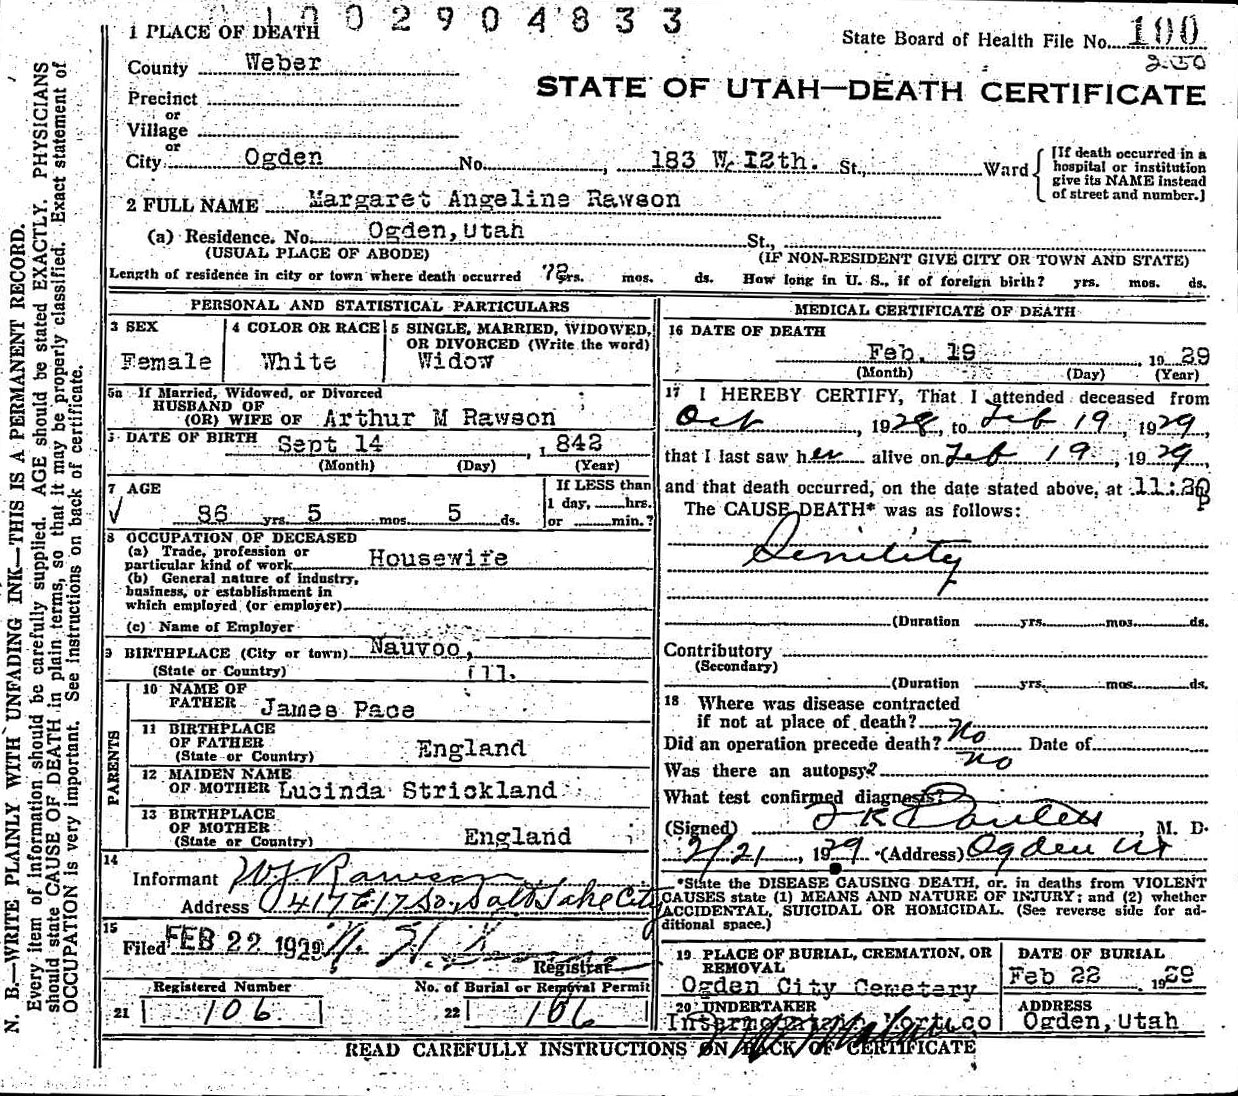 1002904833
1 PLACE OF DEATH
State Board of Health File No. 100
250
County Weber
STATE OF UTAH—DEATH CERTIFICATE
Precinct
or
Village
or
City Ogden No. 183 W. 12th. St., Ward
[If death occurred in a
hospital or institution
give its NAME instead
of street and number.]
2 FULL NAME Margaret Angeline Rawson
(a) Residence. No. Ogden, Utah St.,
(USUAL PLACE OF ABODE) (IF NON-RESIDENT GIVE CITY OR TOWN AND STATE)
Length of residence in city or town where death occurred 78 yrs. mos. ds. How long in U. S., if of foreign birth? yrs. mos. ds.
PERSONAL AND STATISTICAL PARTICULARS
3 SEX
Female
4 COLOR OR RACE
White
5 SINGLE, MARRIED, WIDOWED,
OR DIVORCED (Write the word)
Widow
5a If Married, Widowed, or Divorced
HUSBAND OF
(OR) WIFE OF Arthur M Rawson
6 DATE OF BIRTH Sept 14, 1842
(Month) (Day) (Year)
7 AGE
√ 86 yrs. 5 mos. 5 ds.
If LESS than
1 day, hrs.
or min.?
8 OCCUPATION OF DECEASED
(a) Trade, profession or
particular kind of work Housewife
(b) General nature of industry,
business, or establishment in
which employed (or employer)
(c) Name of Employer
9 BIRTHPLACE (City or town) Nauvoo,
(State or Country) Ill.
PARENTS
10 NAME OF
FATHER James Pace
11 BIRTHPLACE
OF FATHER England
(State or Country)
12 MAIDEN NAME
OF MOTHER Lucinda Strickland
13 BIRTHPLACE
OF MOTHER
(State or Country) England
14
Informant W J Rawson
Address 417 E 17 So. Salt Lake City
15
Filed FEB 22 1929
Registrar
Registered Number
21 106
No. of Burial or Removal Permit
22 106
MEDICAL CERTIFICATE OF DEATH
16 DATE OF DEATH
Feb. 19 1929
(Month) (Day) (Year)
17 I HEREBY CERTIFY, That I attended deceased from
Oct, 1928, to Feb 19, 1929,
that I last saw her alive on Feb 19, 1929,
and that death occurred, on the date stated above, at 11:30
P
The CAUSE DEATH* was as follows:
Senility
(Duration yrs. mos. ds.
Contributory
(Secondary)
(Duration yrs. mos. ds.
18 Where was disease contracted
if not at place of death? No
Did an operation precede death? Date of
Was there an autopsy? no
What test confirmed diagnosis?
(Signed) M. D.
2/21, 1929 (Address) Ogden Ut
*State the DISEASE CAUSING DEATH, or, in deaths from VIOLENT
CAUSES state (1) MEANS AND NATURE OF INJURY; and (2) whether
ACCIDENTAL, SUICIDAL OR HOMICIDAL. (See reverse side for ad-
ditional space.)
19 PLACE OF BURIAL, CREMATION, OR
REMOVAL
Ogden City Cemetery
DATE OF BURIAL
Feb 22 1929
20 UNDERTAKER
ADDRESS
Ogden, Utah
READ CAREFULLY INSTRUCTIONS ON BACK OF CERTIFICATE
N. B.—WRITE PLAINLY WITH UNFADING INK—THIS IS A PERMANENT RECORD.
Every item of information should be carefully supplied. AGE should be stated EXACTLY. PHYSICIANS
should state CAUSE OF DEATH in plain terms, so that it may be properly classified. Exact statement of
OCCUPATION is very important. See instructions on back of certificate.